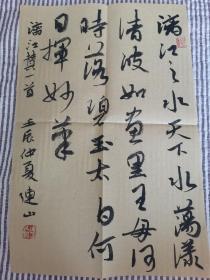 满江之水天下水荡漾
清波如画里王母何
时落环玉太白何
日挥妙笔
满江赞一首
壬辰仲夏连山